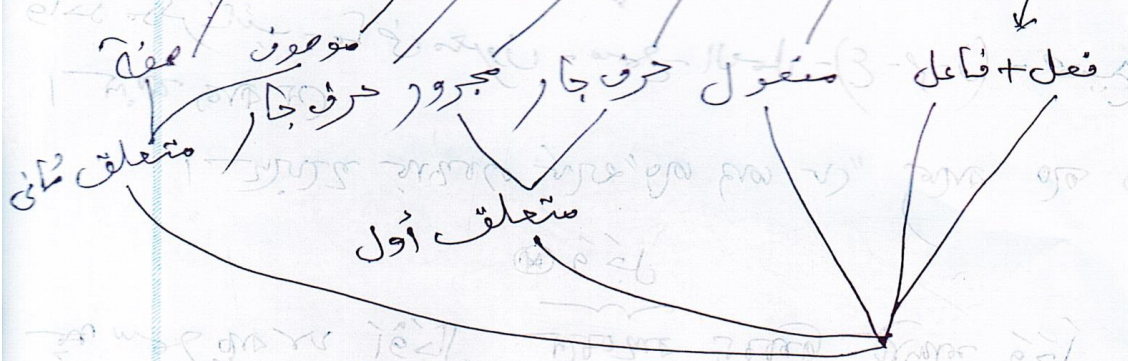 فعل + فاعل مفعول حرف جار مجرور حرف جار موصوف صفة
متعلق أول متعلق ثانى